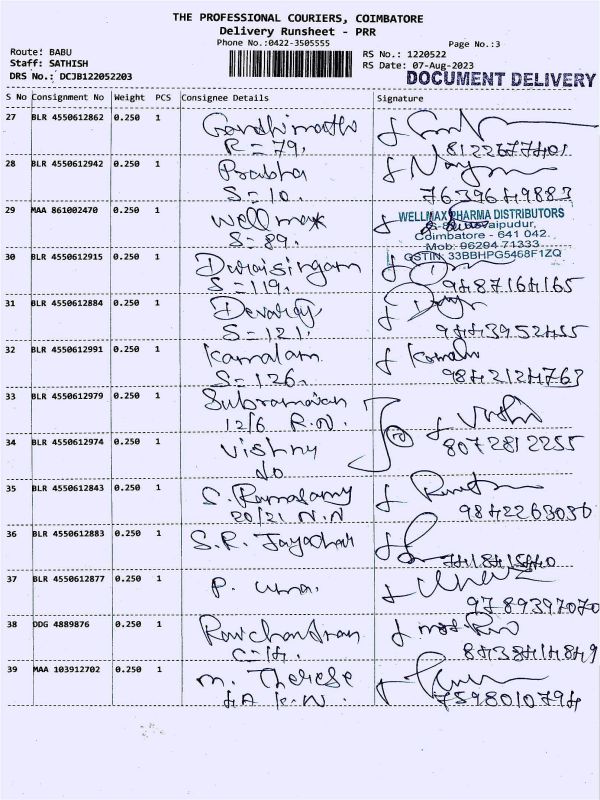 THE PROFESSIONAL COURIERS, COIMBATORE
Delivery Runsheet - PRR
Phone No.:0422-3505555
Page No.:3
Route: BABU
Staff: SATHISH
DRS No.: DCJB122052203
RS No.: 1220522
RS Date: 07-Aug-2023
DOCUMENT DELIVERY
S No Consignment No Weight PCS Consignee Details Signature
27 BLR 4550612862 0.250 1 Gandhimathi
R = 79. 8122677401
28 BLR 4550612942 0.250 1 Prabha
S = 10. 7639649883
29 MAA 861002470 0.250 1 Wellmax
S = 89.
WELLMAX PHARMA DISTRIBUTORS
Coimbatore - 641 042.
Mob: 96294 71333
GSTIN: 33BBHPG5468F1ZQ
30 BLR 4550612915 0.250 1 Duraisingam
S = 119. 9487164165
31 BLR 4550612884 0.250 1 Devaraj
S = 121. 9443952455
32 BLR 4550612991 0.250 1 Kamalam
S = 126. 9842124763
33 BLR 4550612979 0.250 1 Subramanian
12/6 R.N.
34 BLR 4550612974 0.250 1 Vishnu 8072812255
do
35 BLR 4550612843 0.250 1 S. Ramasamy
20/21 N.N 9842263036
36 BLR 4550612883 0.250 1 S.R.
37 BLR 4550612877 0.250 1 P. Uma.
9789397070
38 DDG 4889876 0.250 1 Ravichandran
C-14. 8438414849
39 MAA 103912702 0.250 1 M. Therese
4A K.N. 7598010794